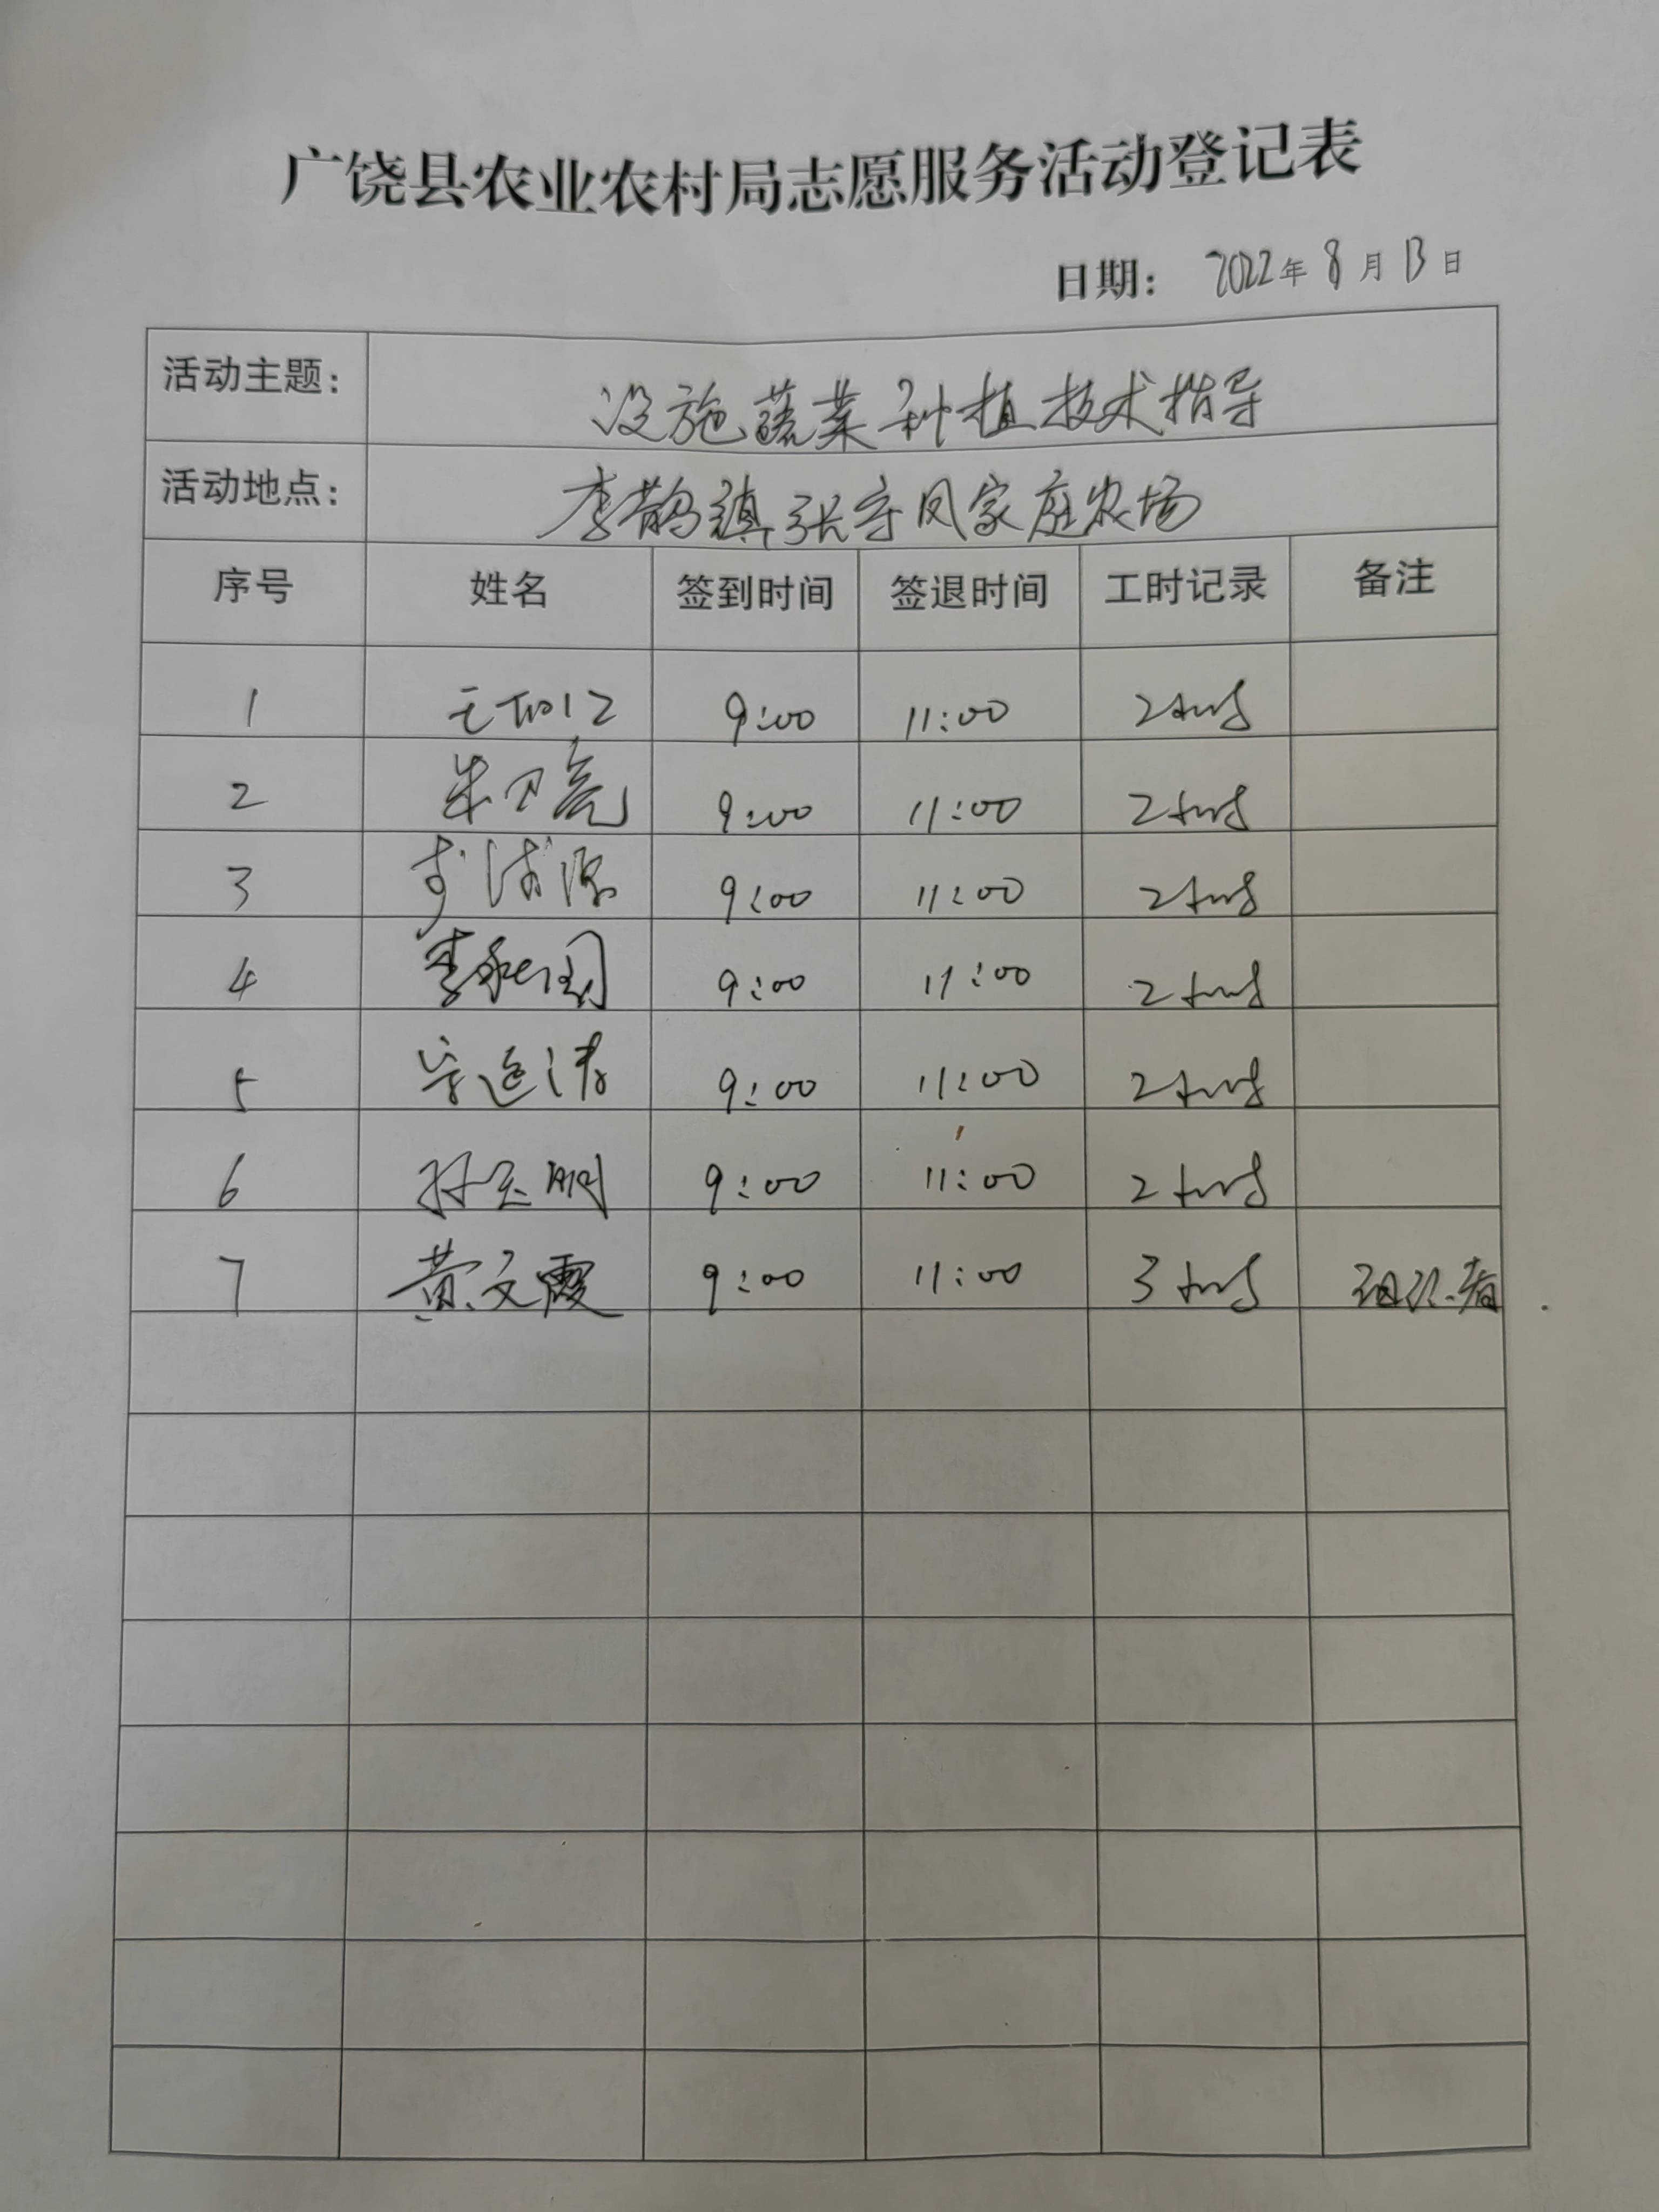 广饶县农业农村局志愿服务活动登记表
日期: 2022年8月13日
活动主题: 设施蔬菜种植技术指导
活动地点: 李鹊镇张守凤家庭农场
序号 姓名 签到时间 签退时间 工时记录 备注
1 9:00 11:00 2小时
2 朱卫亮 9:00 11:00 2小时
3 9:00 11:00 2小时
4 9:00 11:00 2小时
5 9:00 11:00 2小时
6 9:00 11:00 2小时
7 黄文霞 9:00 11:00 3小时 组织者